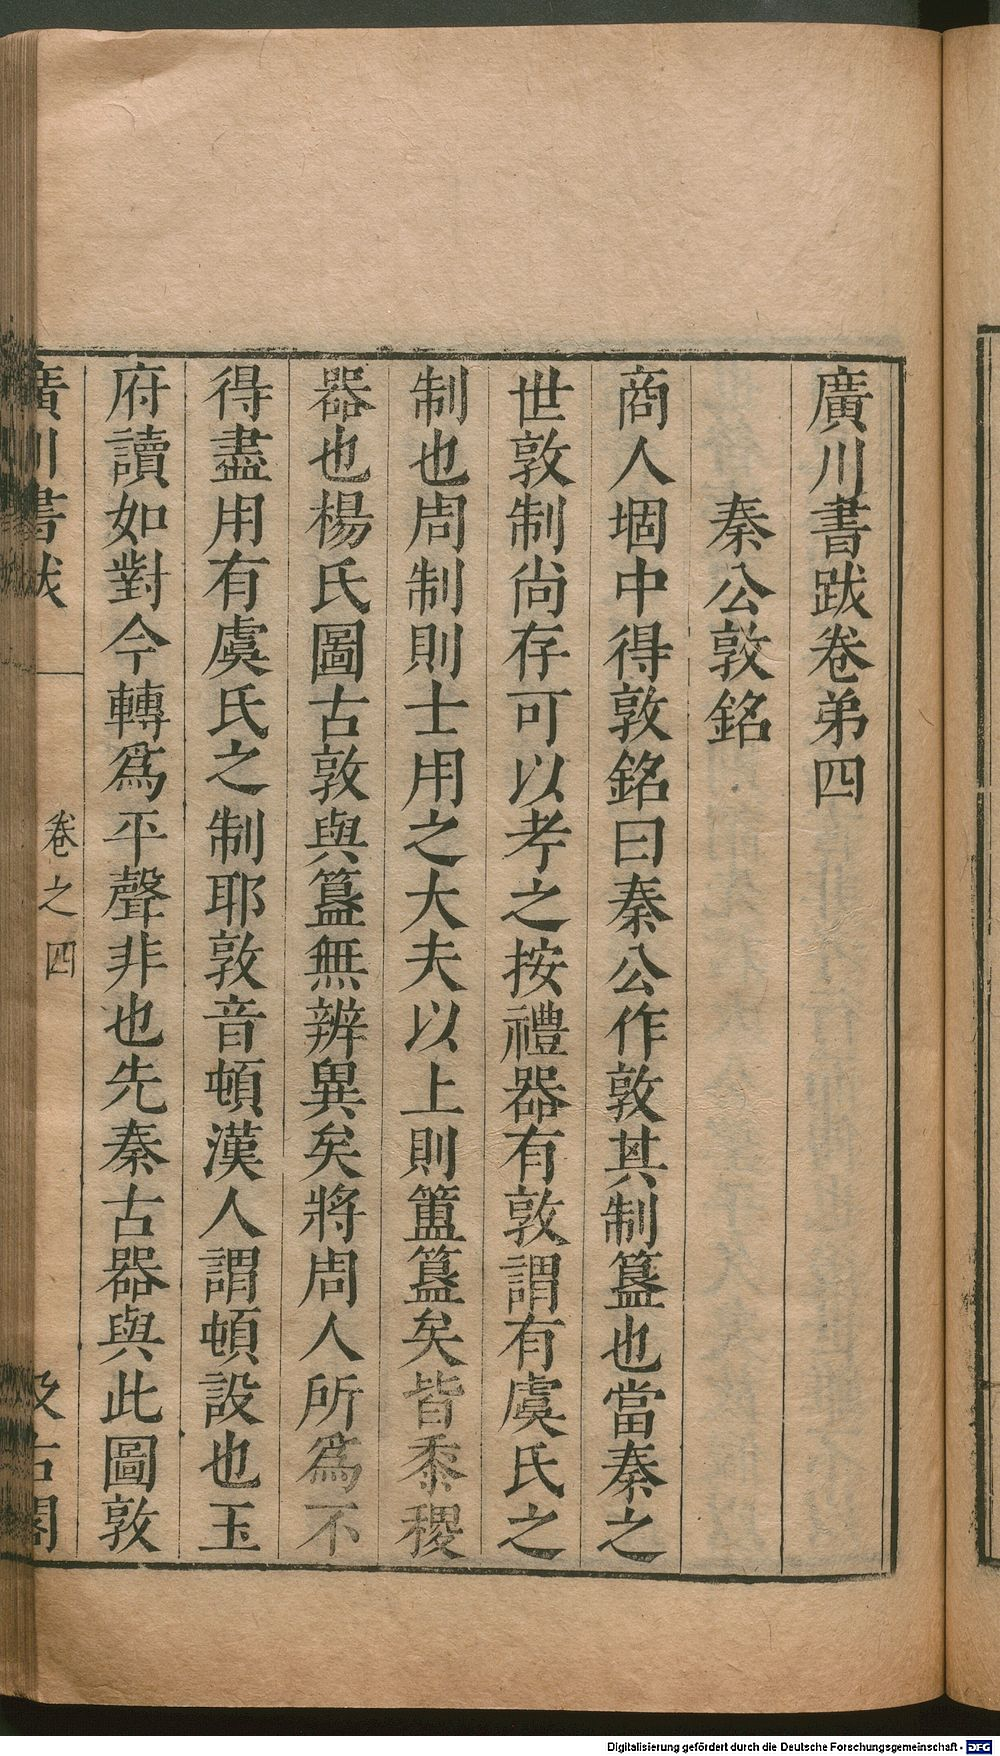 廣川書跋卷弟四
秦公敦銘
商人堌中得敦銘曰秦公作敦其制簋也當秦之
世敦制尚存可以孝之按禮器有敦謂有虞氏之
制也周制則士用之大夫以上則簠簋矣皆黍稷
器也楊氏圖古敦與簋無辨異矣將周人所為不
得盡用有虞氏之制耶敦音頓漢人謂頓設也玉
府讀如對今轉為平聲非也先秦古器與此圖敦
廣川書跋
卷之四
汲古閣
Digitalisierung gefördert durch die Deutsche Forschungsgemeinschaft - DFG